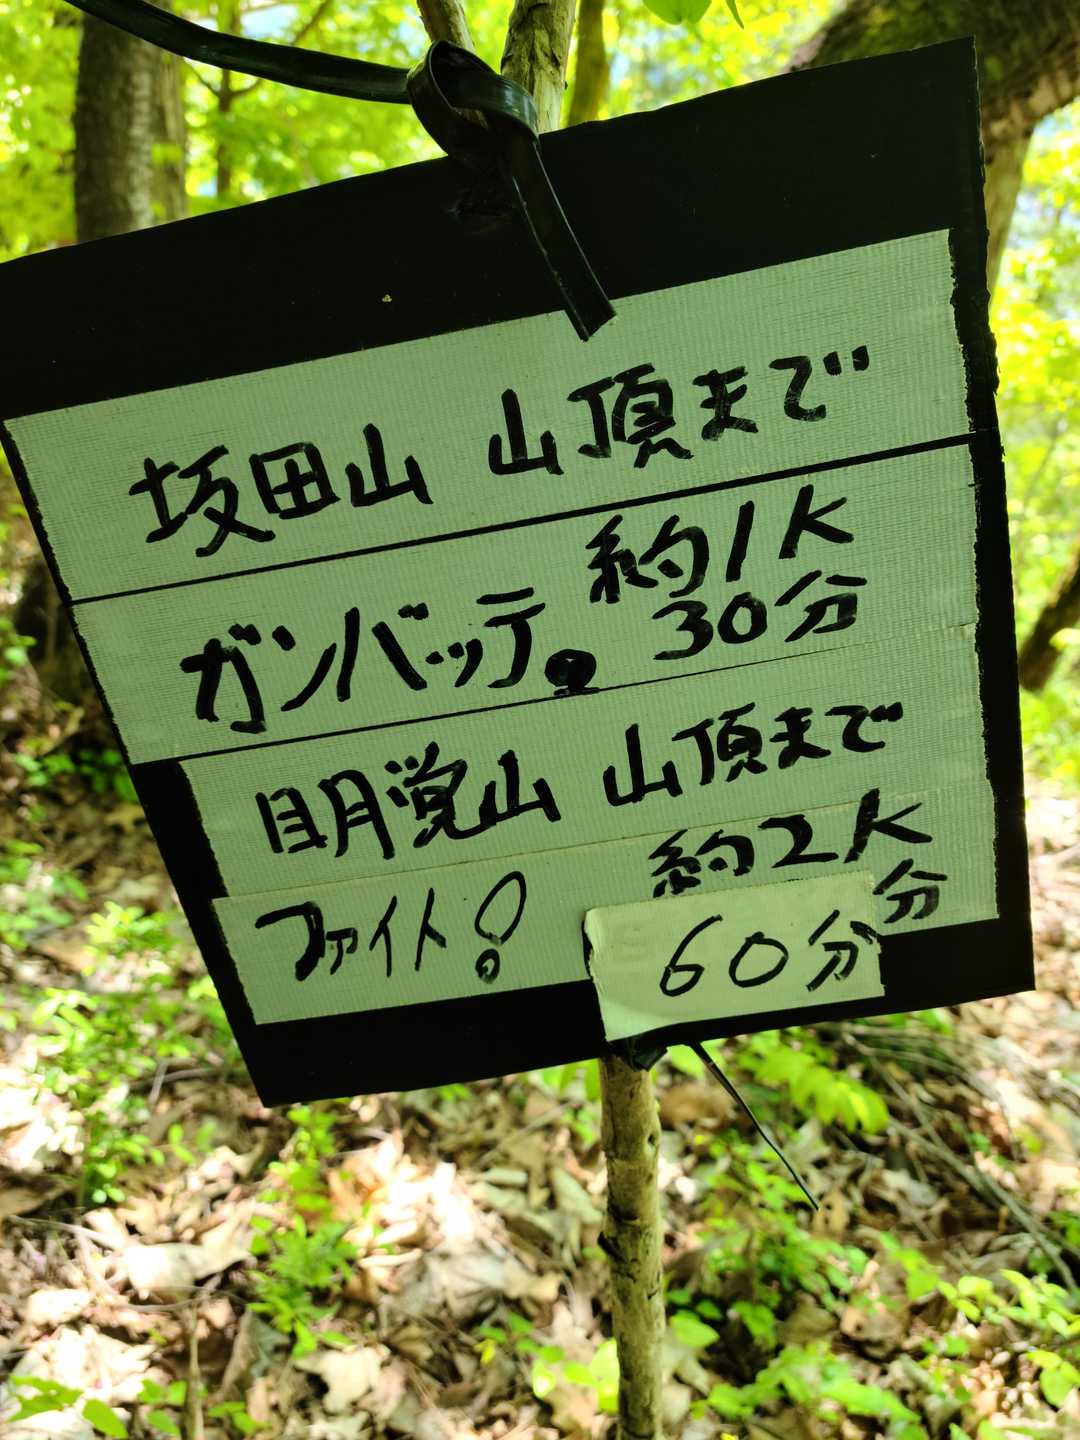 坂田山 山頂まで
約1K
ガンバッテ。 30分
明覚山 山頂まで
約2K
分
ファイト! 60分